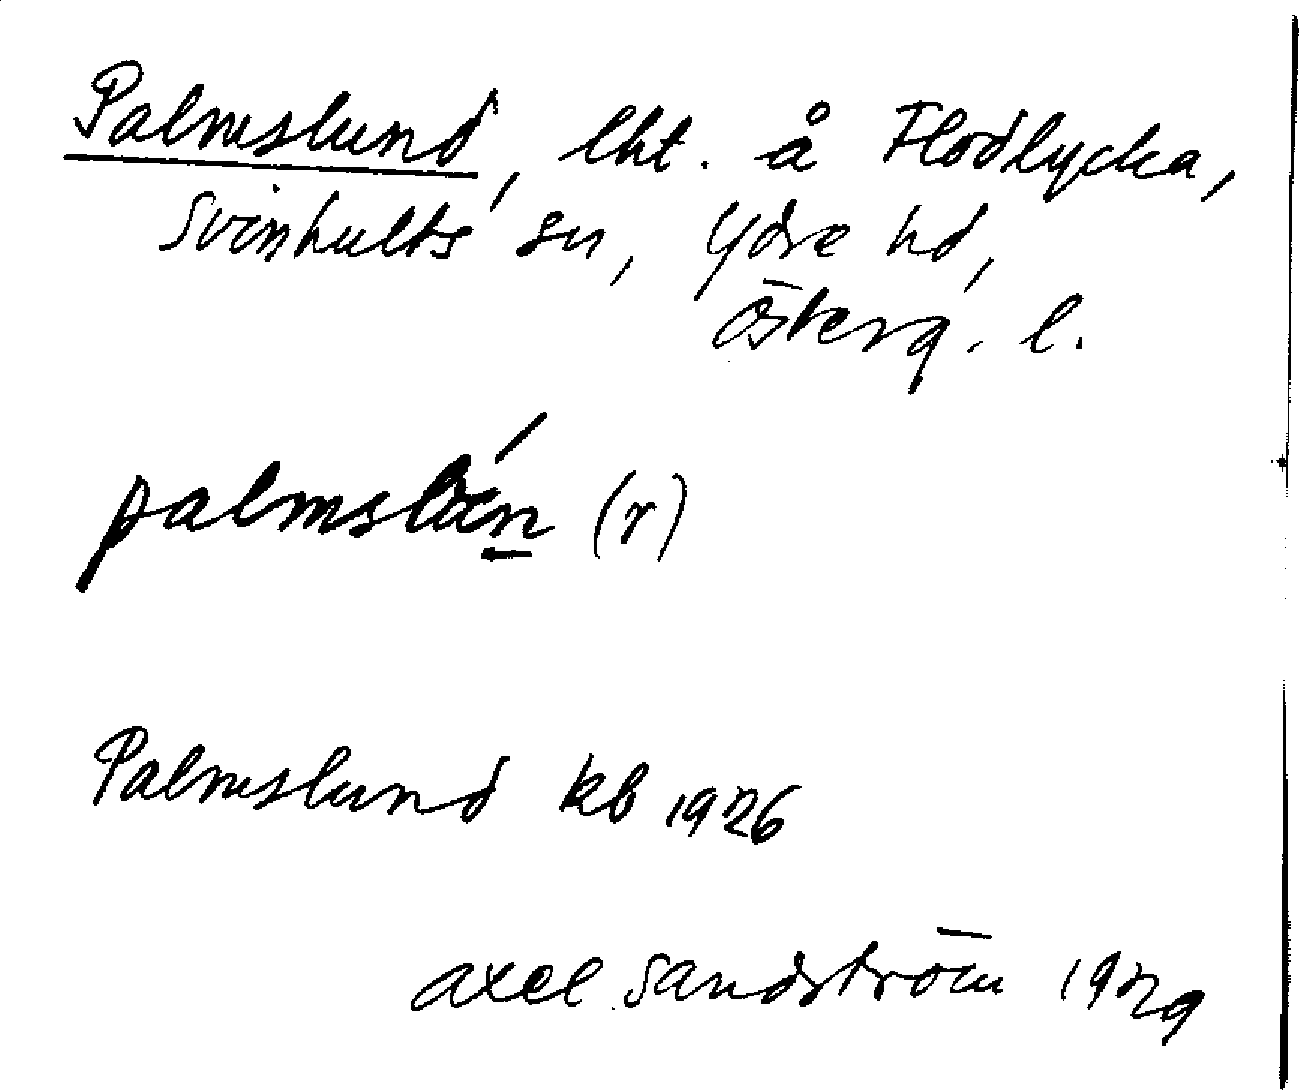 Palmslund, lht. å Flodlycka,
Svinhults sn, Ydre hd,
Österg. l.
(r)
Palmslund kb 1926
Axel Sandström 1929